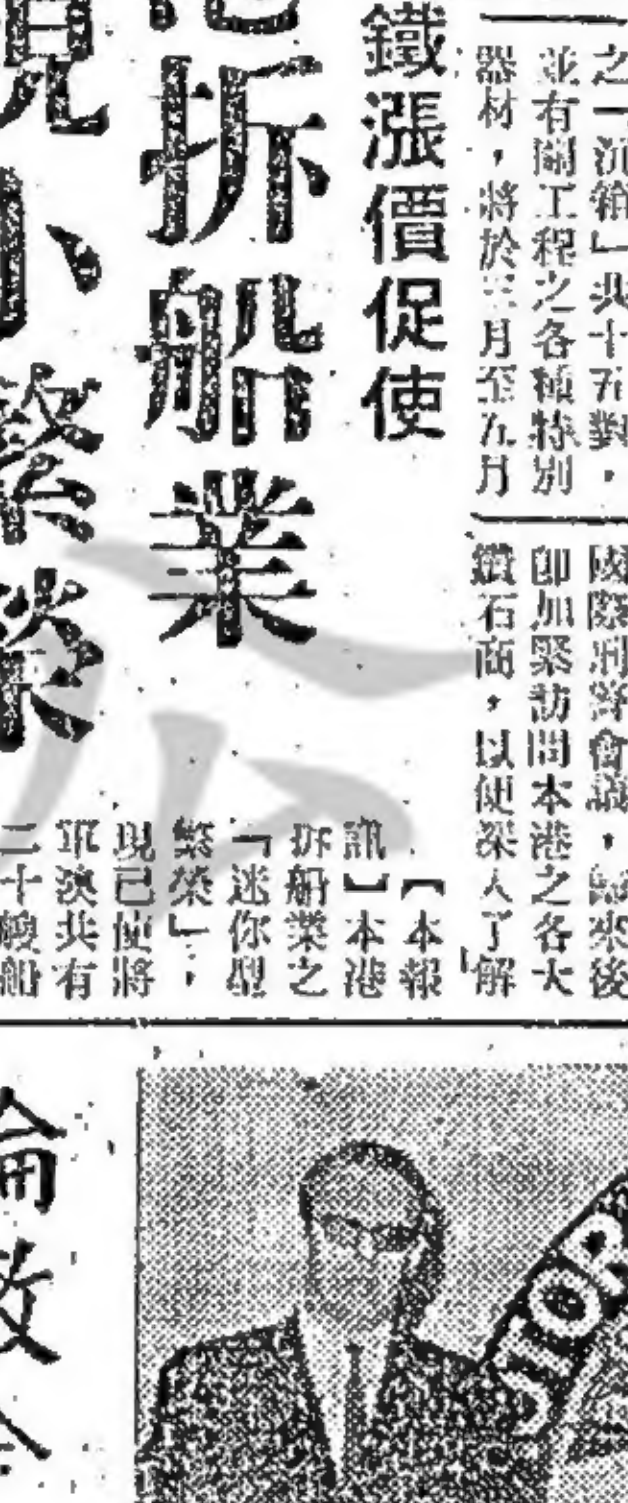 之「沉箱」共十五對，
並有關工程之各種特別
器材，將於三月至九月
國際珠寶會議，歸來後
即加緊訪問本港之各大
鑽石商，以便深入了解
鐵漲價促使
拆船業
現小繁榮
【本報
訊】本港
拆船業之
「迷你型
繁榮」，
現已使將
軍澳共有
二十艘船
STOR